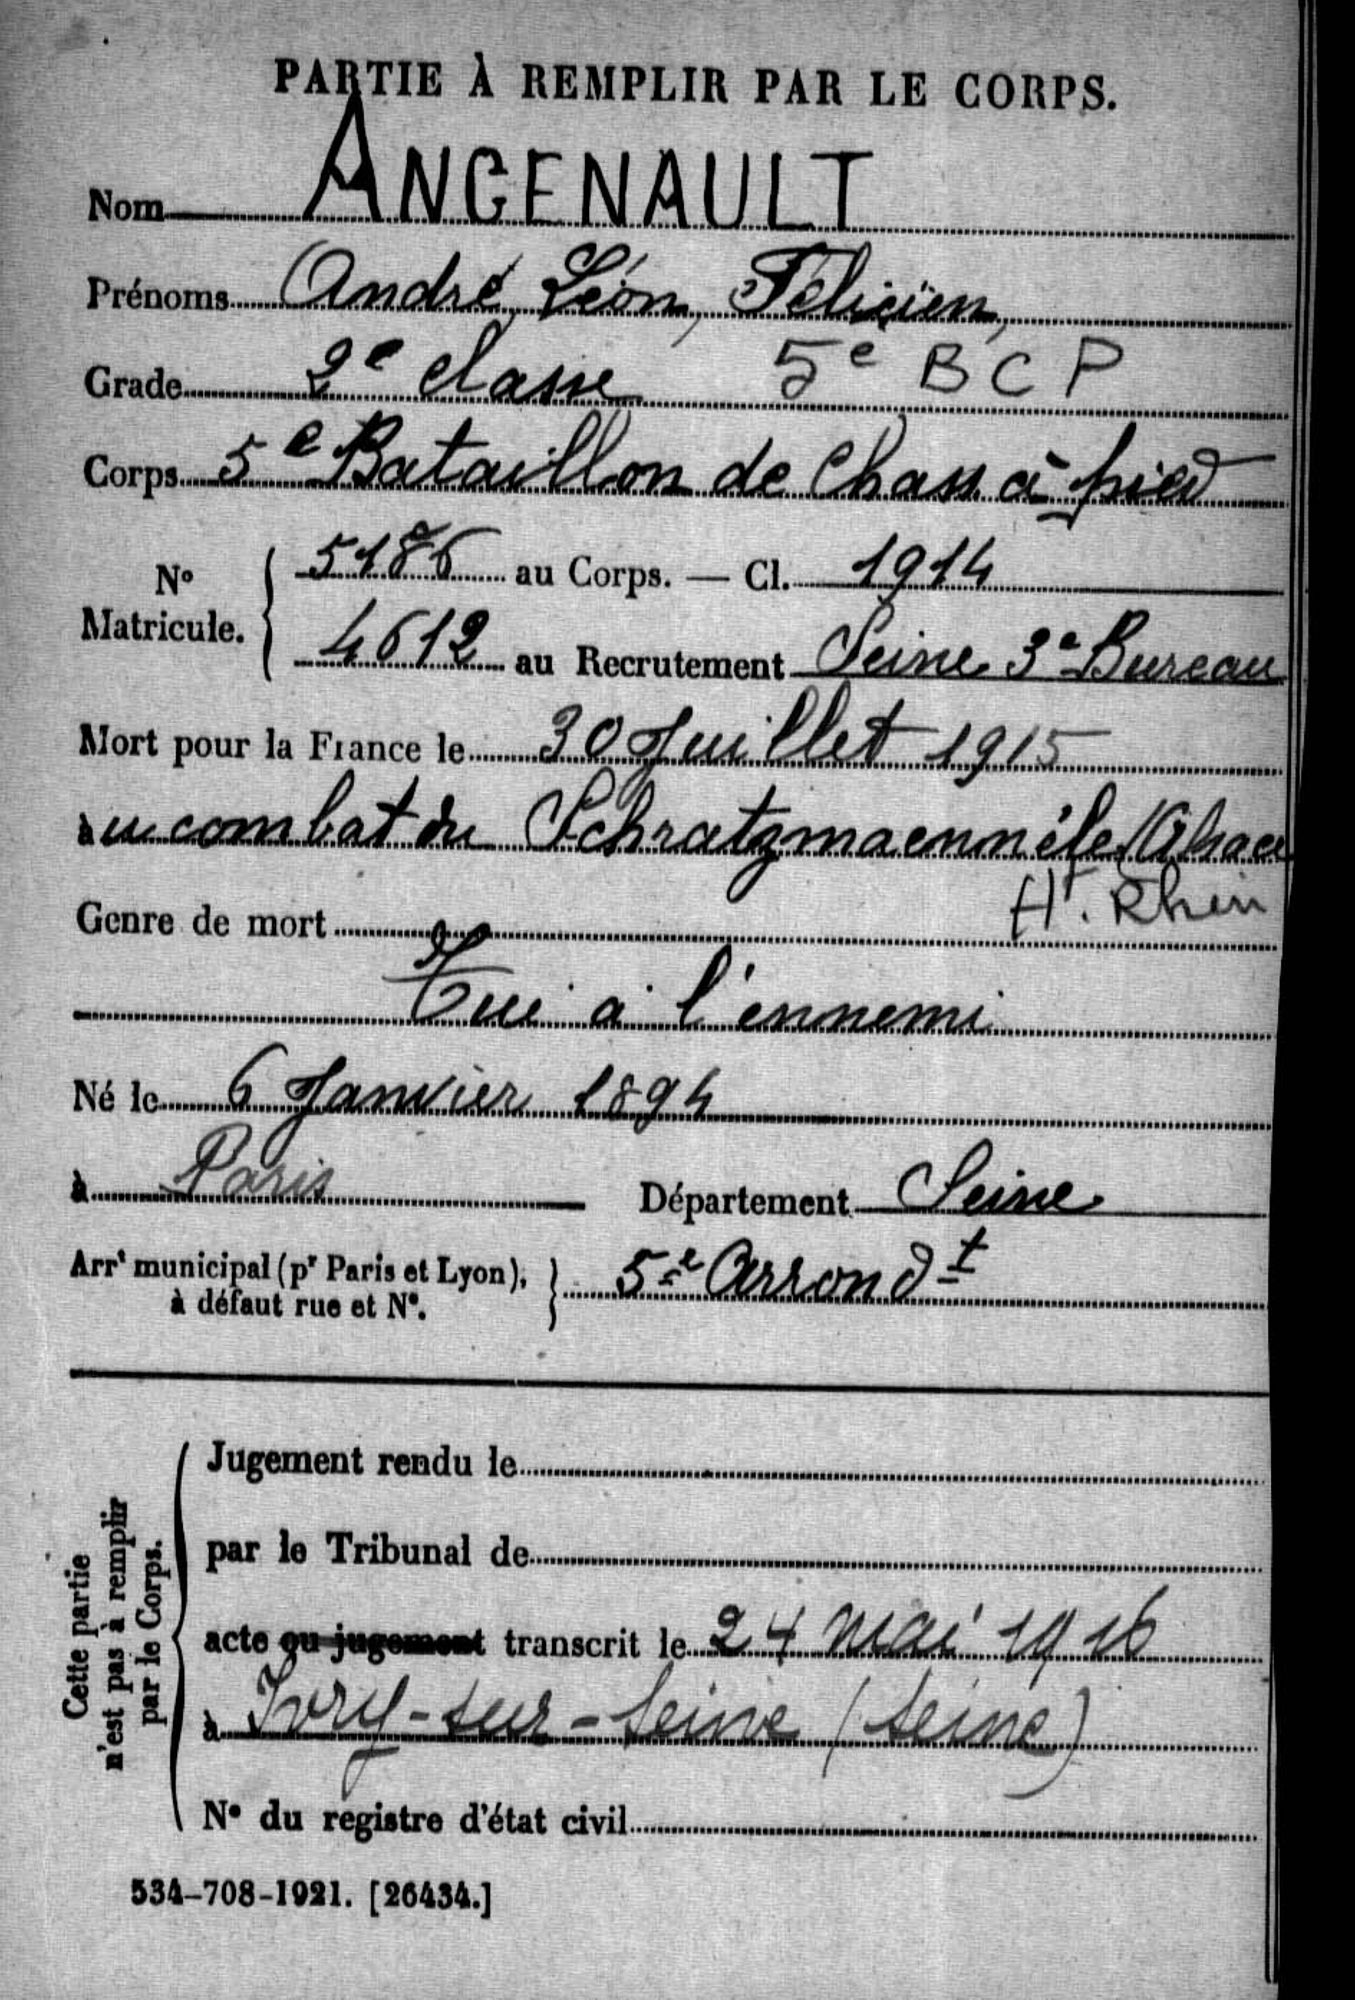 PARTIE À REMPLIR PAR LE CORPS.
Nom ANGENAULT
Prénoms André, Léon, Félicien,
Grade 2e classe 5e B C P
Corps 5e Bataillon de Chass. à pied
No Matricule. { 5186 au Corps. — Cl. 1914
4612 au Recrutement Seine 3e Bureau
Mort pour la France le 30 Juillet 1915
au combat du Schratzmaennele (Alsace
Ht. Rhin
Genre de mort
Tué à l'ennemi
Né le 6 Janvier 1894
à Paris Département Seine
Arrt municipal (pr Paris et Lyon), à défaut rue et No. } 5e Arrondt
Cette partie n'est pas à remplir par le Corps.
Jugement rendu le
par le Tribunal de
acte ou jugement transcrit le 24 mai 1916
à Ivry-sur-Seine (Seine)
No du registre d'état civil
534-708-1921. [26434.]